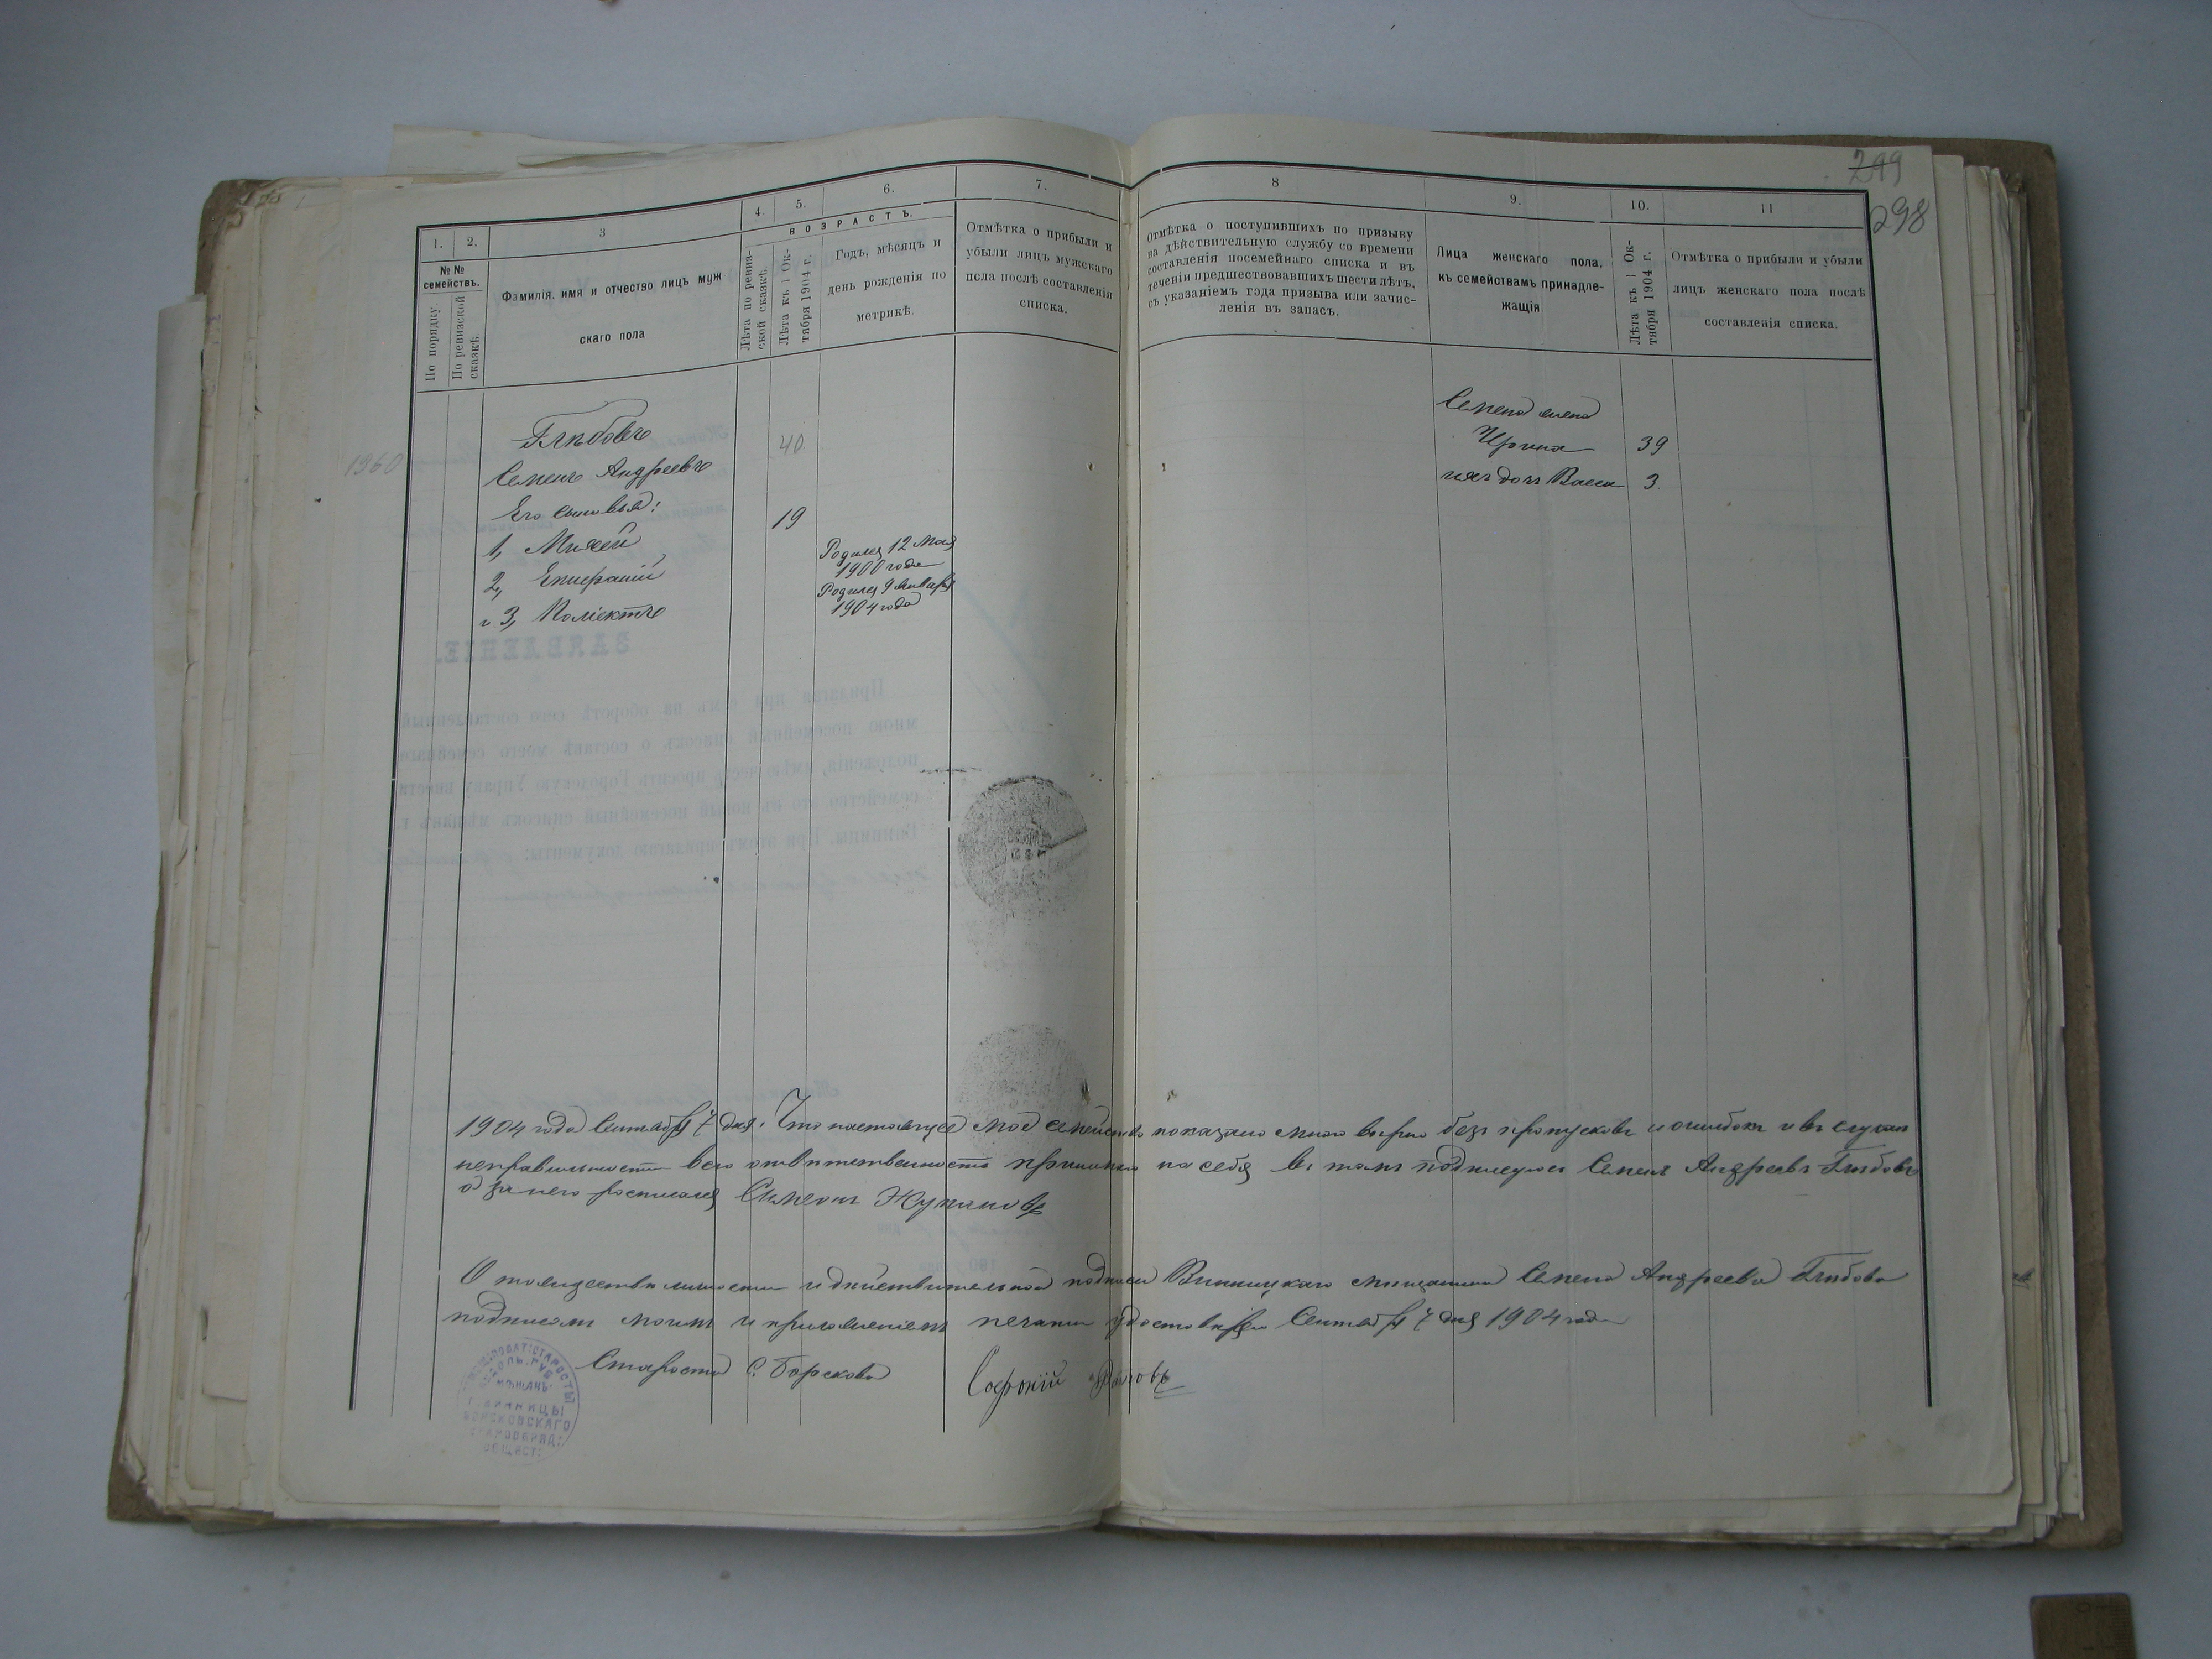 299
298
1. 2. 3 4. 5. 6. 7. 8 9. 10. 11
ВОЗРАСТЪ.
№№ семействъ.
По порядку.
По ревизской сказкѣ.
Фамилія, имя и отчество лицъ муж
скаго пола
Лѣта по ревиз-
ской сказкѣ.
Лѣта къ 1 Ок-
тября 1904 г.
Годъ, мѣсяцъ и
день рожденія по
метрикѣ.
Отмѣтка о прибыли и
убыли лицъ мужскаго
пола послѣ составленія
списка.
Отмѣтка о поступившихъ по призыву
на дѣйствительную службу со времени
составленія посемейнаго списка и въ
теченіи предшествовавшихъ шести лѣтъ,
съ указаніемъ года призыва или зачис-
ленія въ запасъ.
Лица женскаго пола,
къ семействамъ принадле-
жащія
Лѣта къ 1 Ок-
тября 1904 г.
Отмѣтка о прибыли и убыли
лицъ женскаго пола послѣ
составленія списка.
1960
Глѣбовъ
Семенъ Андреевъ 40
Его сыновья:
1, Михей 19
2, Родился 12 Мая
1900 года
и 3, Родился 9 Января
1904 года
Семена жена
Ирина 39
ихъ дочь Васса 3.
ЗАЯВЛЕНІЕ.
1904 года Сентября 7 дня. Что настоящее мое семейство показано мною вѣрно безъ пропусковъ и ошибокъ и въ случаи
неправильности всю отвѣтственность принимаю на себя въ томъ подписуюсь Семенъ Андреевъ Глѣбовъ
а за него росписался Симеонъ
О тождествѣ личности и дѣйствительной подписи Винницкаго мищанина Семена Андреева Глѣбова
подписомъ моимъ и приложеніемъ печати удостовѣряю Сентября 7 дня 1904 года
Староста С. Борскова Софоній
СТАРОСТЫ
МѢЩАНЪ
Г. ВИННИЦЫ
БОРСКОВСКАГО
СТАРООБРЯД:
ОБЩЕСТ: